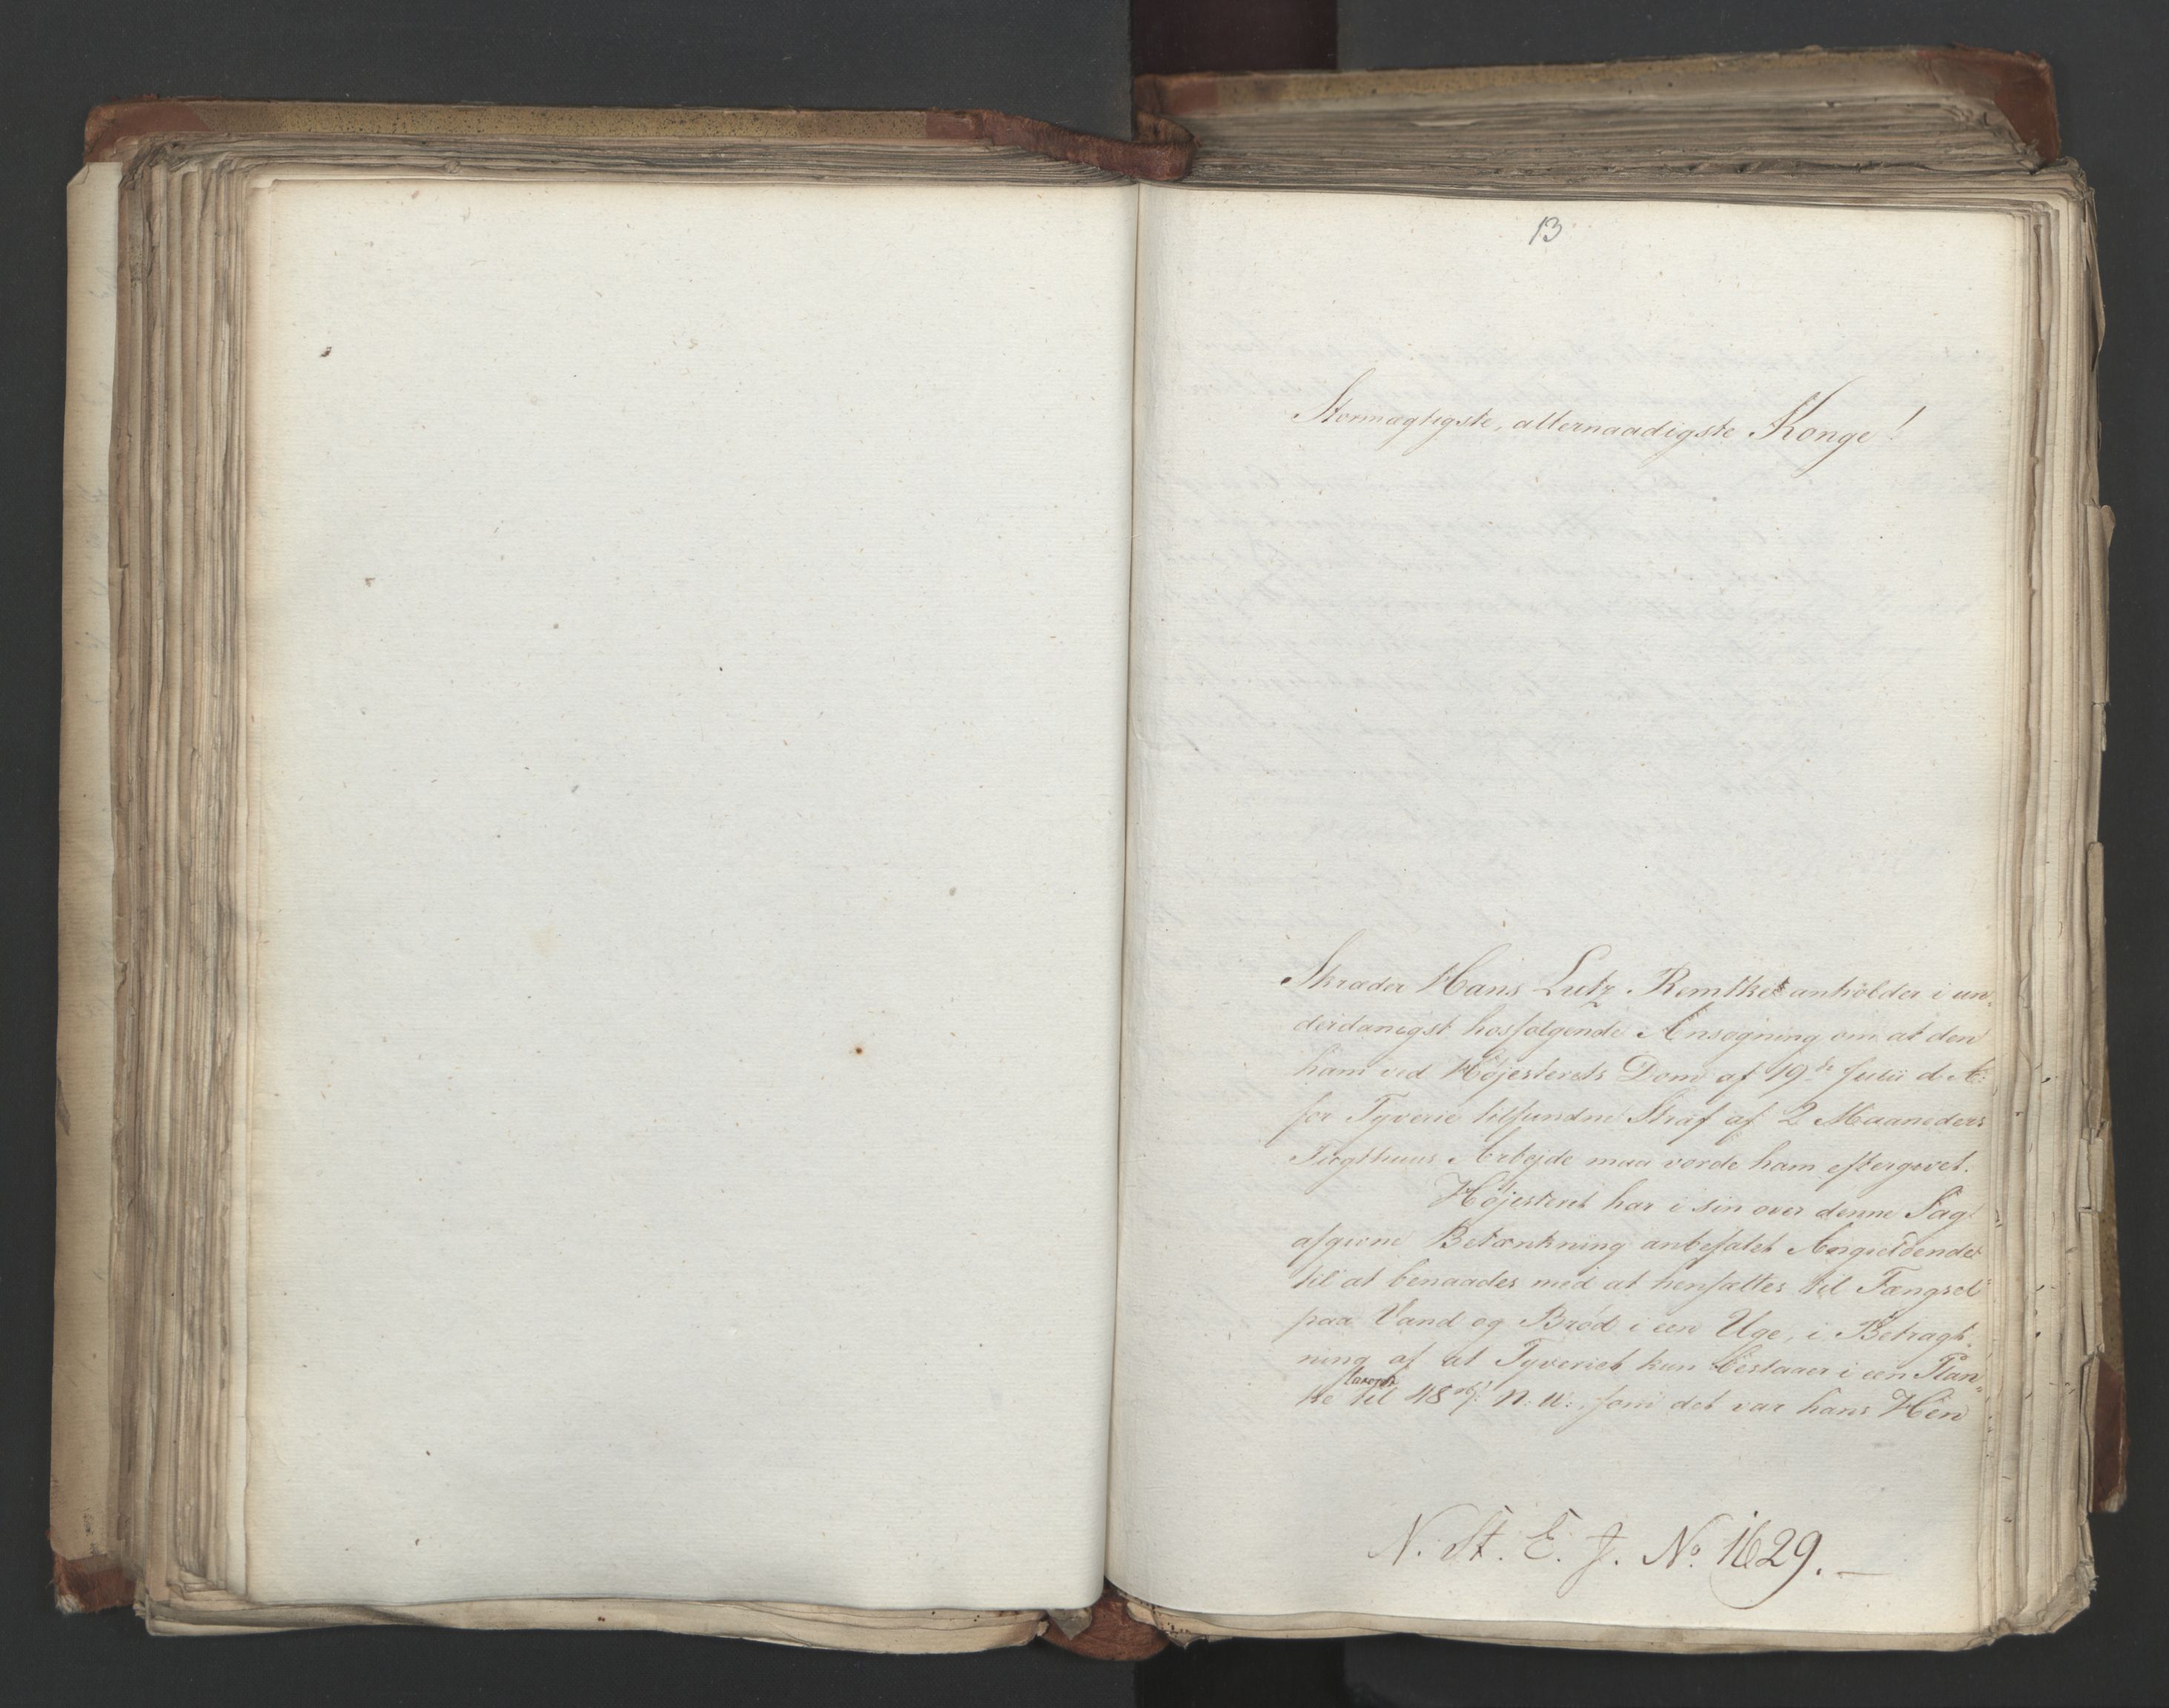 13
Stormægtigste, allernaadigste Konge!
Skræder Hans Lutz Remtke anholder i un-
derdanigst hosfølgende Ansøgning om at den
ham ved Højesterets Dom af 19de Julii d. A:
for Tyverie tilfundne Straf af 2 Maaneders
Tugthuus Arbejde maa vorde ham eftergivet.
Højesteret har i sin over denne Sag
afgivne Betænkning anbefalet Angieldende
til at benaades med at hensættes til Fængsel
paa Vand og Brød i een Uge, i Betragt-
ning af at Tyveriet kun bestaaer i een Plan-
ke taxeret til 48 s/ N: V:, som det var hans Hen
N. St. E. J. No. 1629.